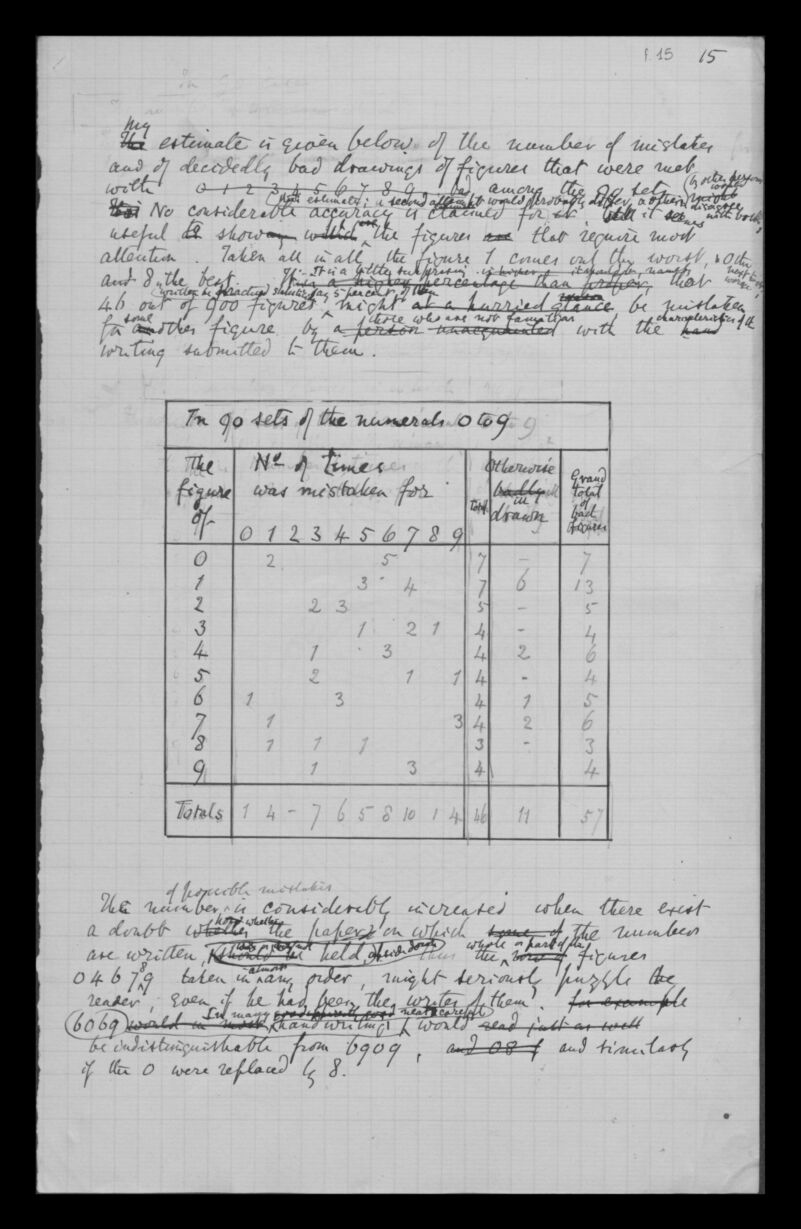 f. 15 15
My
The estimate is given below of the number of mistakes
and of decidedly bad drawings of figures that were met
with 0 1 2 3 4 5 6 7 8 9 among the 90 sets
No considerable accuracy is claimed for it
useful to show the figures that require most
attention. Taken all in all, the figure 1 comes out the worst,
and 8 the best. It is a little surprising that
46 out of 900 figures might at a hurried glance be mistaken
some those who are not familiar characteristics of the
for another figure, by a person unacquainted with the hand
writing submitted to them.
In 90 sets of the numerals 0 to 9
The figure of
No of times was mistaken for
0 1 2 3 4 5 6 7 8 9
Total
Otherwise badly ill drawn
Grand total of bad figures
0 2 5 7 – 7
1 3 4 7 6 13
2 2 3 5 – 5
3 1 2 1 4 – 4
4 1 3 4 2 6
5 2 1 1 4 – 4
6 1 3 4 1 5
7 1 3 4 2 6
8 1 1 1 3 – 3
9 1 3 4 4
Totals 1 4 – 7 6 5 8 10 1 4 46 11 57
of possible mistakes
The number is considerably increased when there exist
a doubt whether the paper on which some of the numbers
are written, held upside down thus the figures
0 4 6 7 8 9 taken in almost any order, might seriously puzzle the
reader, even if he had been the writer of them. for example
6069 would in most handwriting would read just as well
be indistinguishable from 6909, and similarly
if the 0 were replaced by 8.